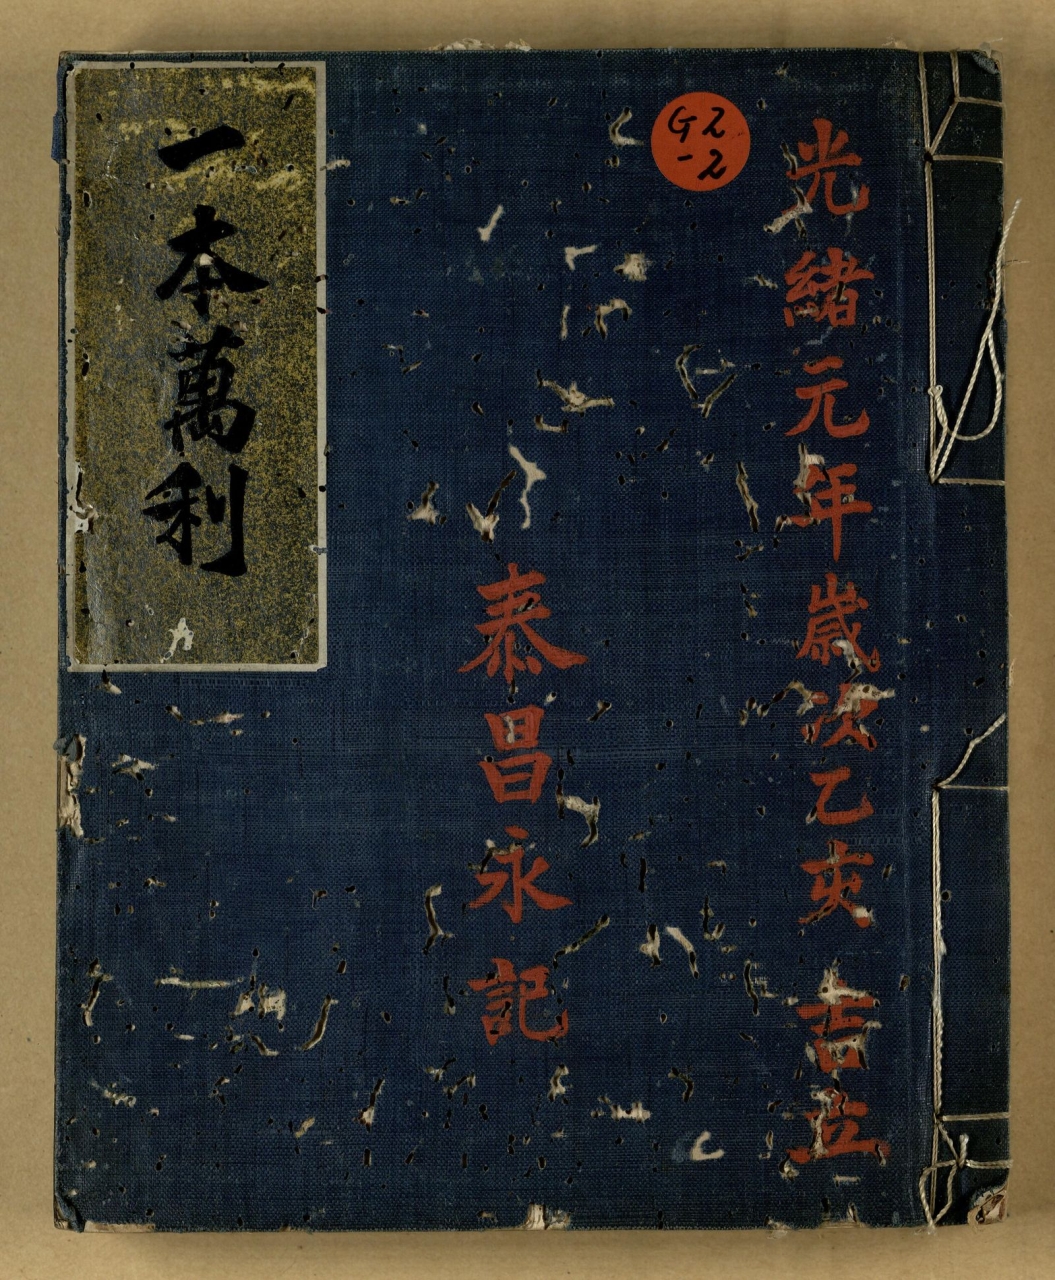 光緒元年歲次乙亥 吉立
泰昌永記
一本萬利
G2
-2